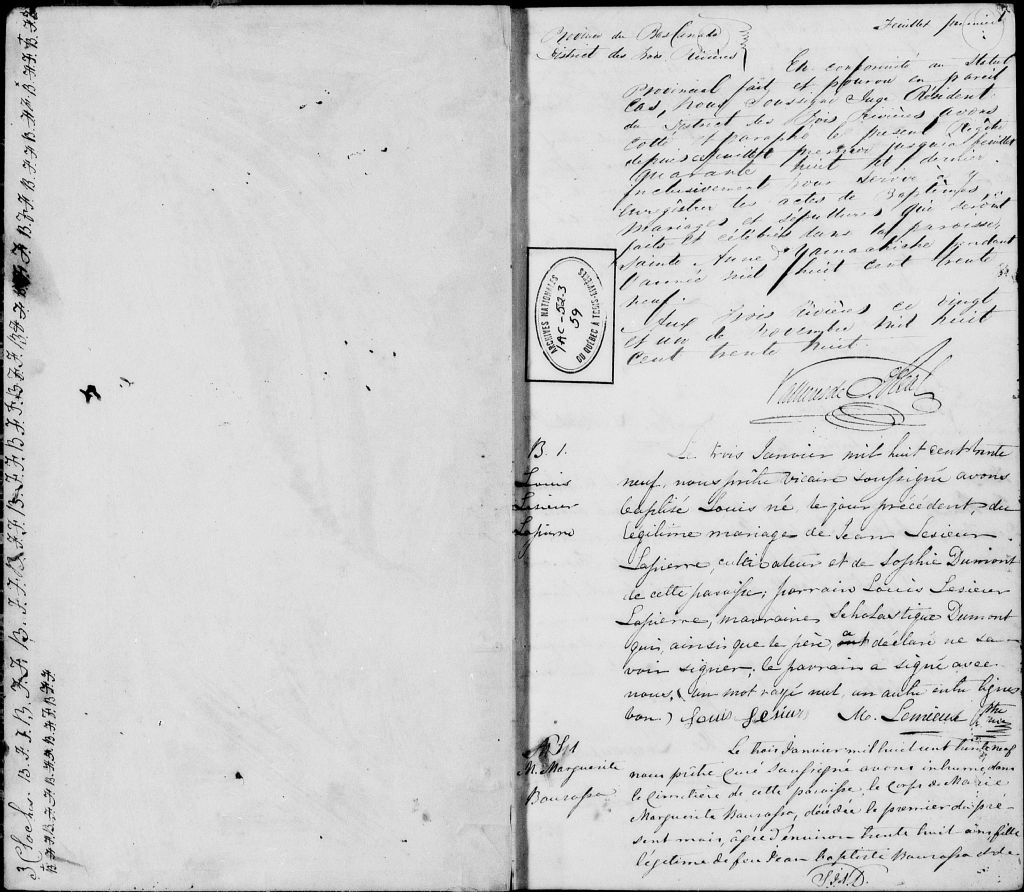 3 Cloches. B. F. F. B. F. F. B. F. F. B. F. F. B. F. F. B. F. F. B. F. F. B. F. F. B.
Province du Bas Canada
District des Trois Rivières
Feuillet premier
En conformité au Statut
Provincial fait et pourvu en pareil
Cas, Nous Soussigné Juge Résident
du District des Trois Rivières avons
cotté et paraphé le présent Régistre
depuis ce feuillet premier jusqu'au feuillet
quarante huit et dernier
Inclusivement pour servir à
enrégistrer les actes de Baptêmes,
Mariages et sépultures qui seront
faits et célébrés dans la paroisse
Sainte Anne d'Yamachiche pendant
l'année mil huit cent trente
neuf.
Aux Trois Rivières ce vingt
et un de Novembre mil huit
cent trente huit.
ARCHIVES NATIONALES
1AC-52.3
59
DU QUÉBEC À TROIS-RIVIÈRES
B. 1.
Louis
Lesieur
Lapierre
Le trois Janvier mil huit cent trente
neuf, nous prêtre vicaire soussigné avons
baptisé Louis né, le jour précédent, du
légitime mariage de Jean Lesieur
Lapierre, cultivateur et de Sophie Dumont
de cette paroisse; parrain Louis Lesieur
Lapierre, marraine Scholastique Dumont
qui, ainsi que le père, a déclaré ne sa-
voir signer, le parrain a signé avec
nous, (un mot rayé nul, un autre entre lignes
bon.) Louis Lesieur M. Lemieux Ptre
S. 1
M. Marguerite
Bourassa
Le trois Janvier mil huit cent trente neuf
nous prêtre curé soussigné avons inhumé dans
le cimetière de cette paroisse le corps de Marie
Marguerite Bourassa, décédée le premier du pré-
sent mois, âgée d'environ trente huit ans fille
légitime de feu Jean Baptiste Bourassa et de